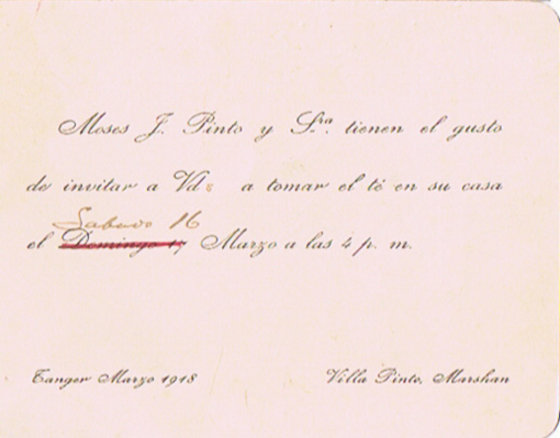 Moses J. Pinto y Sra. tienen el gusto
de invitar a Vds a tomar el té en su casa
Sabado 16
el Domingo 17 Marzo a las 4 p. m.
Tanger Marzo 1918
Villa Pinto, Marshan